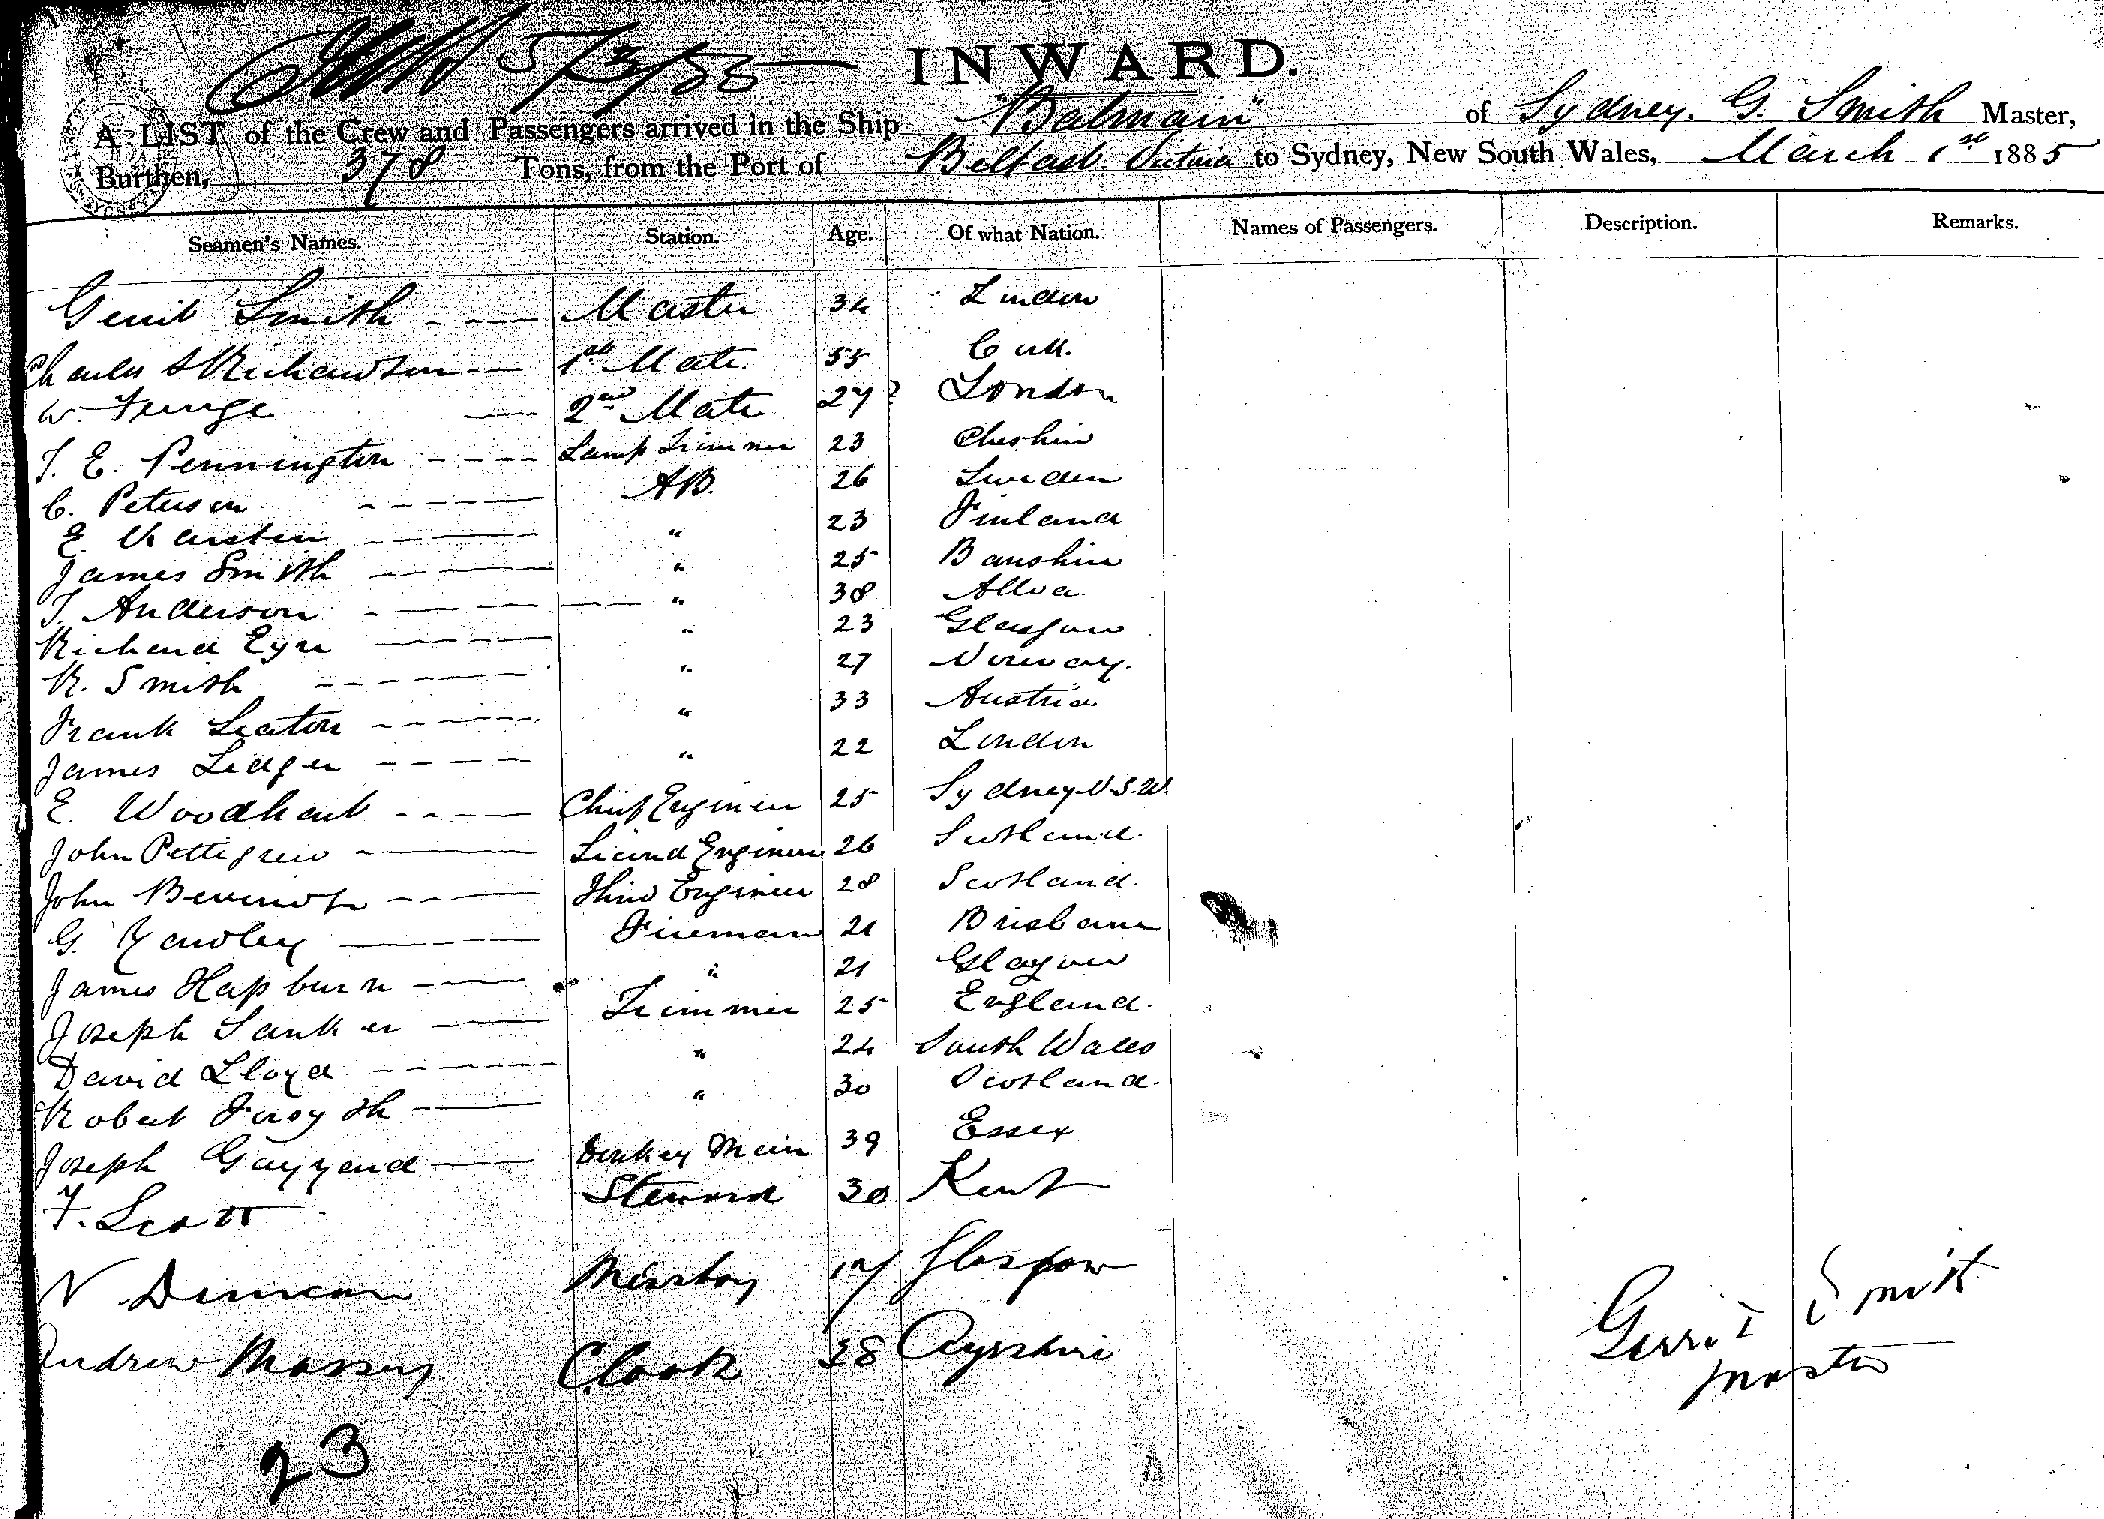 INWARD.
A LIST of the Crew and Passengers arrived in the Ship "Balmain" of Sydney. G. Smith Master,
Burthen, 378 Tons, from the Port of Belfast Victoria to Sydney, New South Wales, March 1st 1885
Seamen's Names. Station. Age. Of what Nation. Names of Passengers. Description. Remarks.
Gerrit Smith Master 34 London
Charles S Richardson 1st Mate 55 Cork.
W. 2nd Mate 27 London
T. E. Pennington Lamp Trimmer 23 Cheshire
C. Petersen AB. 26 Sweden
E. Karsten " 23 Finland
James Smith " 25 Banshire
T. Anderson " 38 Alloa
Richard Eyre " 23 Glasgow
R. Smith " 27 Norway.
Frank Seaton " 33 Austria
James Ledger " 22 London
E. Woodhead Chief Engineer 25 Sydney N.S.W.
John Pettigrew Second Engineer 26 Scotland.
John Third Engineer 28 Scotland.
G. Yawley Fireman 21 Brisbane
James Hapburn " 21 Glasgow
Joseph Trimmer 25 England.
David Lloyd " 24 South Wales
Robert Forsyth " 30 Scotland.
Joseph Gayzard Donkey Man 39 Essex
F. Scott Steward 30 Kent
N Duncan Messboy 17 Glasgow
Andrew Massey Cook 28 Ayrshire
Gerrit Smith
Master
23